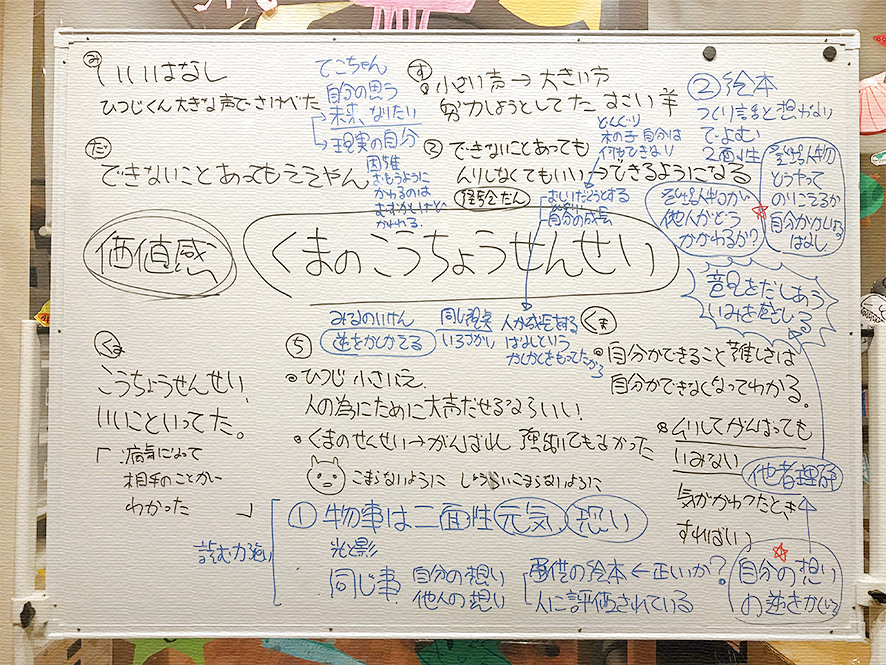 み
いいはなし
ひつじくん大きな声でさけべた
てこちゃん
自分の思う
未来、なりたい
現実の自分
困難
おもうように
かわるのは
す
小さい声→大きい声
努力しようとしてた すごい羊
どんぐり
木の子 自分は
何もできない
②絵本
2面性
登場人物
どうやって
のりこえるか
はなし
だ
できないことあってもええやん
できないことあっても
ムリしなくてもいい→できるようになる
経験だん
自分の成長
登場人物が
他人がどう
かかわるか?
価値感
くまのこうちょうせんせい
意見をだしあう
いみを感じる
みるのいけん
同じ視点
人が成長をする
はなしという
くま
こうちょうせんせい、
いいこといってた。
「病気になって
相手のことが
わかった 」
ち
ひつじ 小さい
人の為にために大声だせるならいい!
くまのせんせい→がんばれ
こまらないように
くま
自分ができること難しさは
自分ができなくなってわかる。
ムリしてがんばっても
いみない
他者理解
気がかわったとき
すればいい
①物事は二面性 元気 恐い
光と影
読む力強い
同じ事
自分の想い
他人の想い
の絵本←正しいか?
人に評価されている
自分の想い